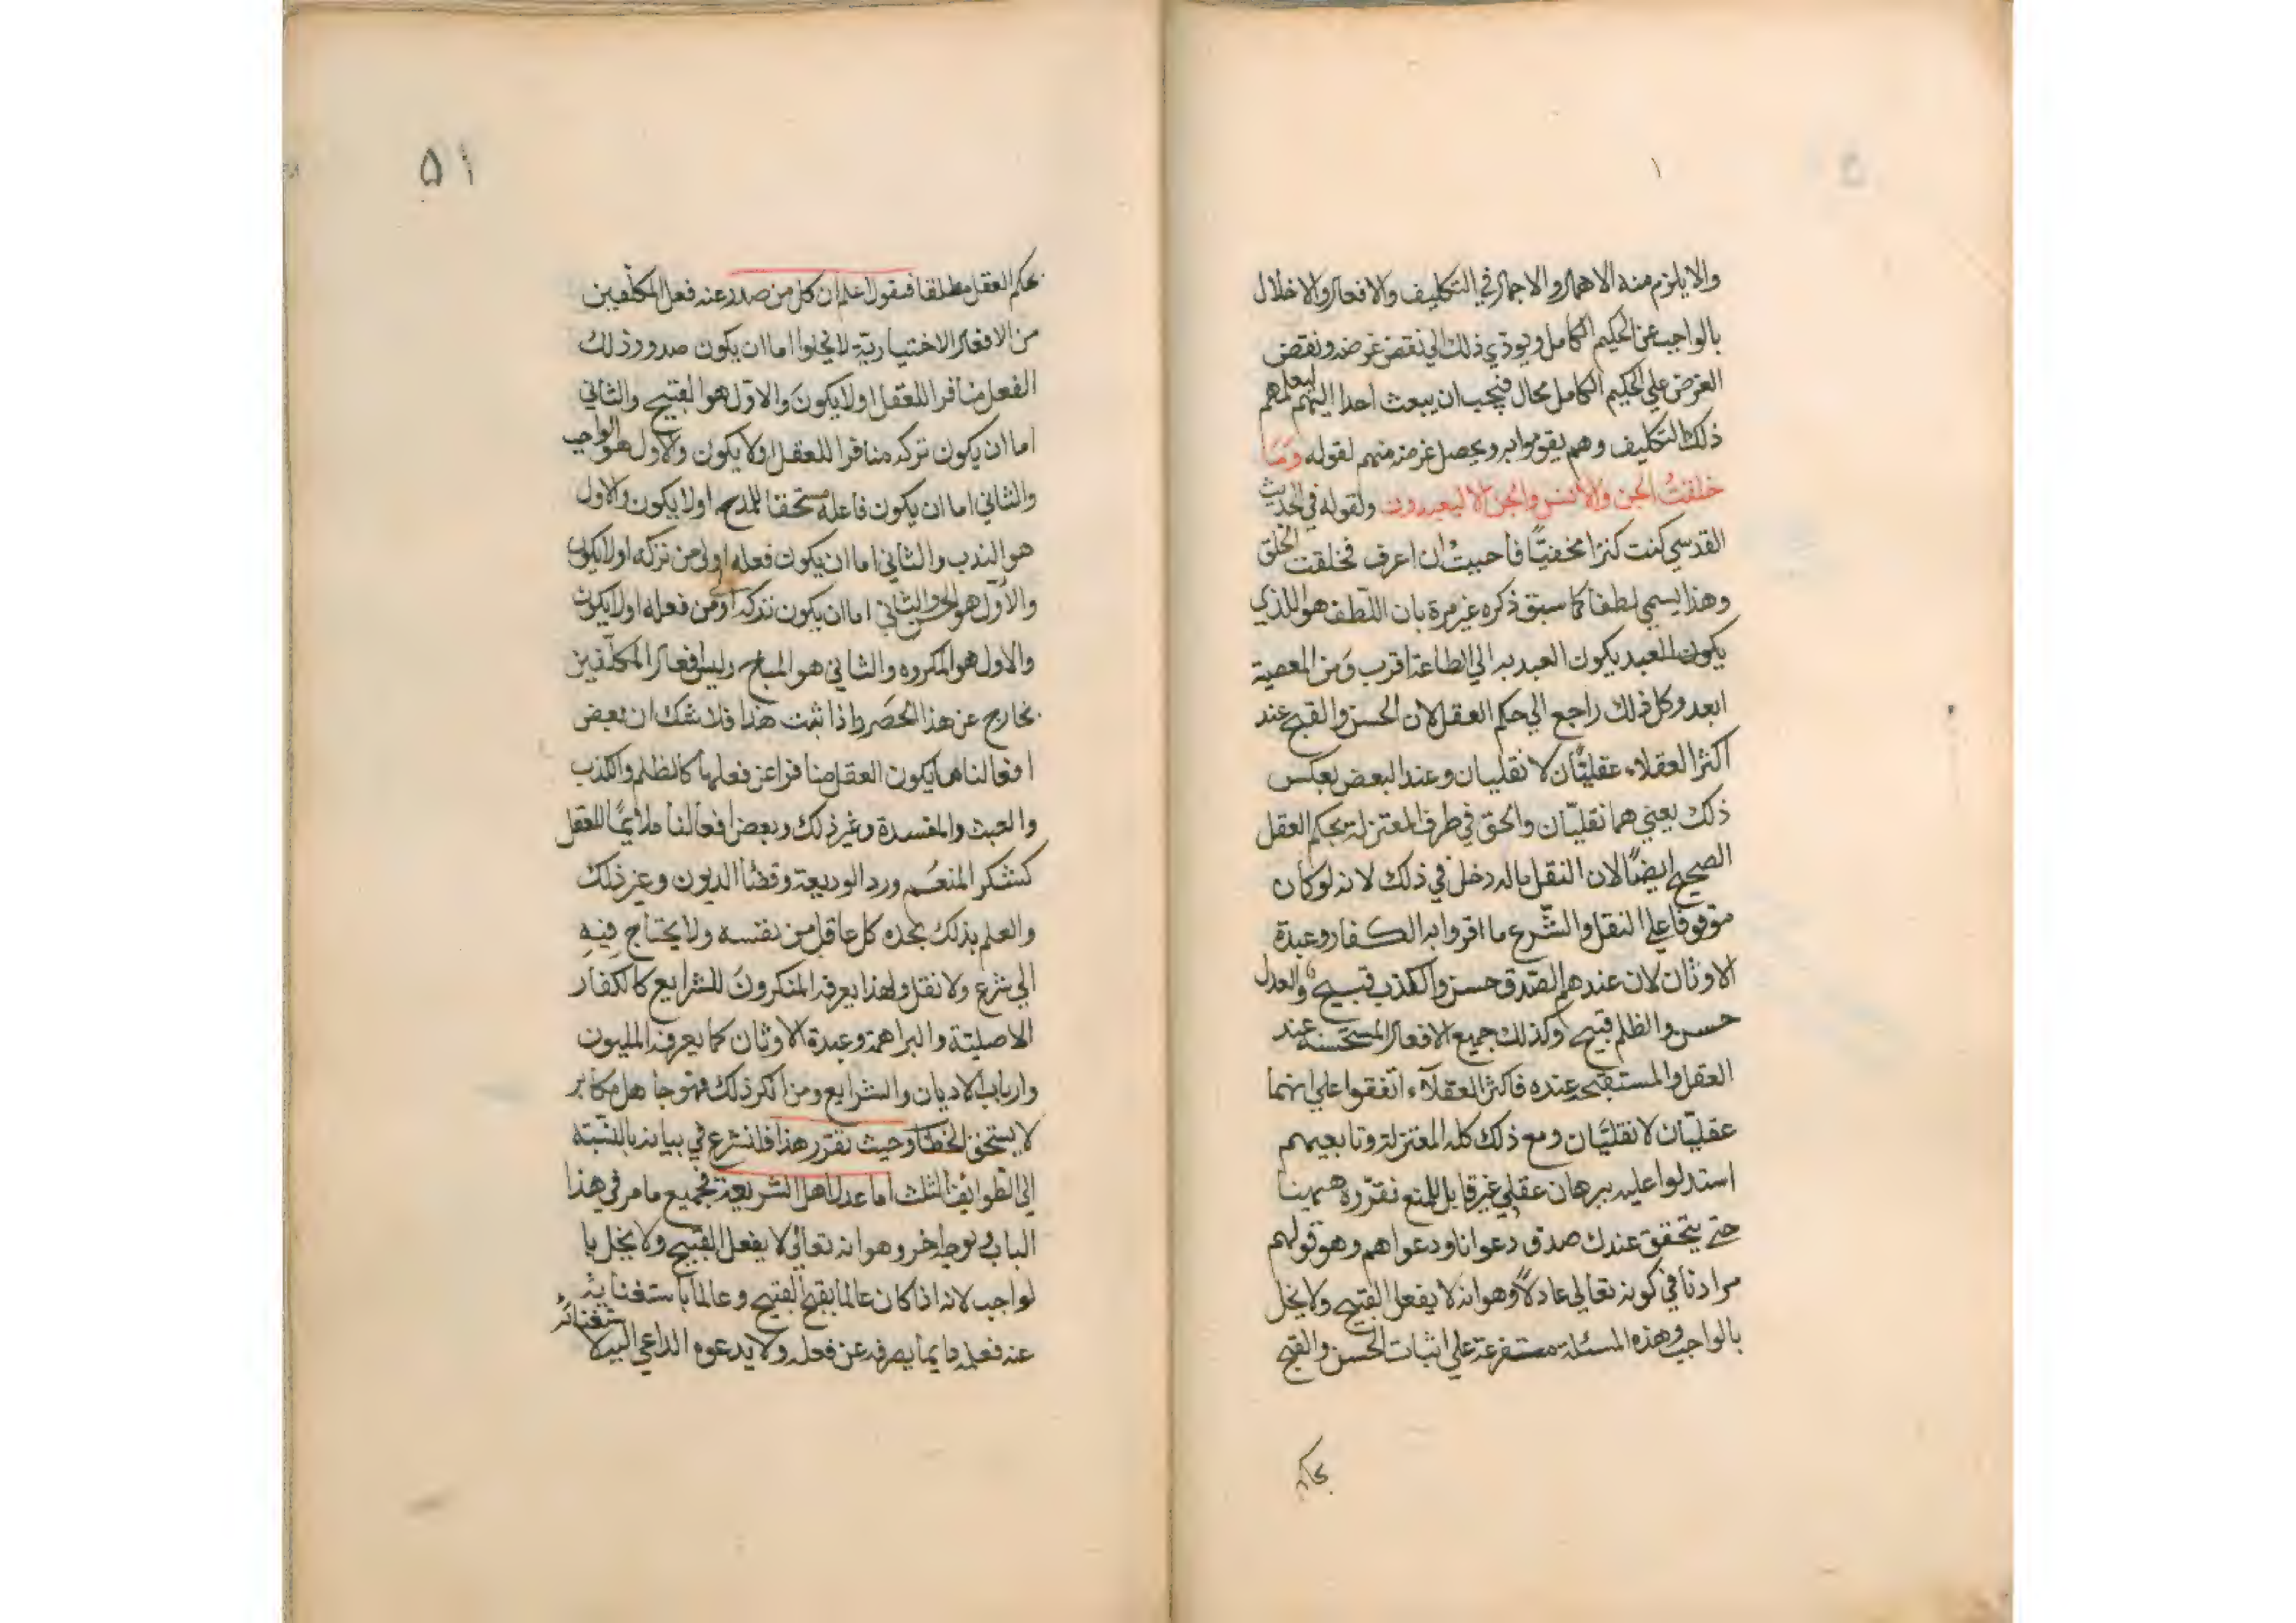 والا يلزم منه الاهمال والاجمال في التكليف والافعال والاخلال
بالواجب عن الحكيم الكامل ويوذي ذلك الي نقض غرضه ونقض
الغرض علي الحكيم الكامل محال فيجب ان يبعث احدا اليهم ليعلمهم
ذلك التكليف وهم يقوموا به ويحصل غرضه منهم لقوله وَمَا
خلقتُ الجن والانس والجن الا ليعبدون ولقوله في الحديث
القدسي كنت كنزا مخفيًّا فاحببتُ ان اعرف فخلقت الخلق
وهذا يسمي لطفا كما سبق ذكره غير مرة بان اللّطف هو اللذي
يكون العبد يكون العبد به الي الطاعة اقرب وَمن المعصية
ابعد وكل ذلك راجع الي حكم العقل لان الحسن والقبح عند
اكثر العقلاء عقليّان لا نقليان وعند البعض بعكس
ذلك يعني هما نقليّان والحق في طرف المعتزلة بحكم العقل
الصحيح ايضًا لان النقل ماله دخل في ذلك لانه لو كان
موقوفا علي النقل والشّرع ما اقروا به الكفار وعبدة
الاوثان لان عندهم الصّدق حسن والكذب قبيح والعدل
حسن والظلم قبيح وكذلك جميع الافعال المستحسنة عند
العقل والمستقبحة عنده فاكثر العقلآء اتفقوا علي انهما
عقليّان لا نقليّان ومع ذلك كله المعتزلة وتابعيهم
استدلوا عليه ببرهان عقلي غير قابل للمنع نقرّره هيهنا
حتي يتحقق عندك صدق دعوانا ودعواهم وهو قولهم
مرادنا في كونه تعالي عادلاً وهو انه لا يفعل القبيح ولا يخل
بالواجب وهذه المسئلة متفرعة علي اثبات الحسن والقبح
بحكم
۵۱
بحكم العقل مطلقا فنقول اعلم ان كل من صدر عنه فعل المكلّفين
من الافعال الاختياريّة لا يخلوا اما ان يكون صدور ذلك
الفعل منافرا للعقل اولا يكونَ والاوّل هو القبيح والثاني
اما ان يكون تركه منافرا للعقل اولا يكون والاول هو الواجب
والثاني اما ان يكون فاعله مستحقا للمدح اولا يكون والاول
هو الندب والثاني اما ان يكون فعله اولي من تركه اولا يكون
والاوّل هو الحسن والثاني اما ان يكون تركه اولي من فعله اولا يكون
والاول هو المكروه والثاني هو المباح وليس افعال المكلّفين
بخارج عن هذا الحصَر واذا ثبت هذا فلا شك ان بعض
افعالنا مما يكون العقل منافرا عن فعلها كالظلم والكذب
والعبث والمفسدة وغير ذلك وبعض افعالنا ملائمًا للعقل
كشكر المنعم ورد الوديعة وقضاا الديون وغير ذلك
والعلم بذلك يجده كل عاقل من نفسه ولا يحتاج فِيهِ
الي شرع ولا نقل ولهذا يعرفه المنكرونَ للشرايع كالكفار
الاصليّة والبراهمة وعبدة الاوثان كما يعرفه المليون
وارباب الاديان والشرايع ومن انكر ذلك فهو جاهل مكابر
لا يستحق الخطاب وحيث تقرر هذا فلنشرع في بيانه بالنسّبة
الي الطوايف الثلث اما عدل اهل الشريعة فجميع ما مر في هذا
الباب وبوجه اخر وهو انه تعالي لا يفعل القبيح ولا يخل با
لواجب لانه اذا كان عالما بقبح القبيح وعالما باستغنايه
ستغنائه
عنه فعلمه دايما يصرفه عن فعله ولا يدعوه الداعي اليه لا